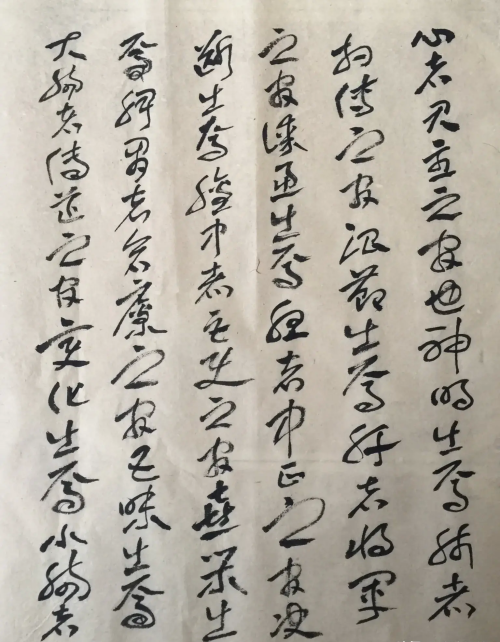 心者君主之官也神明出焉肺者
相傅之官治節出焉肝者將軍
之官謀慮出焉膽者中正之官決
斷出焉膻中者臣使之官喜樂出
焉脾胃者倉廩之官五味出焉
大腸者傳道之官變化出焉小腸者